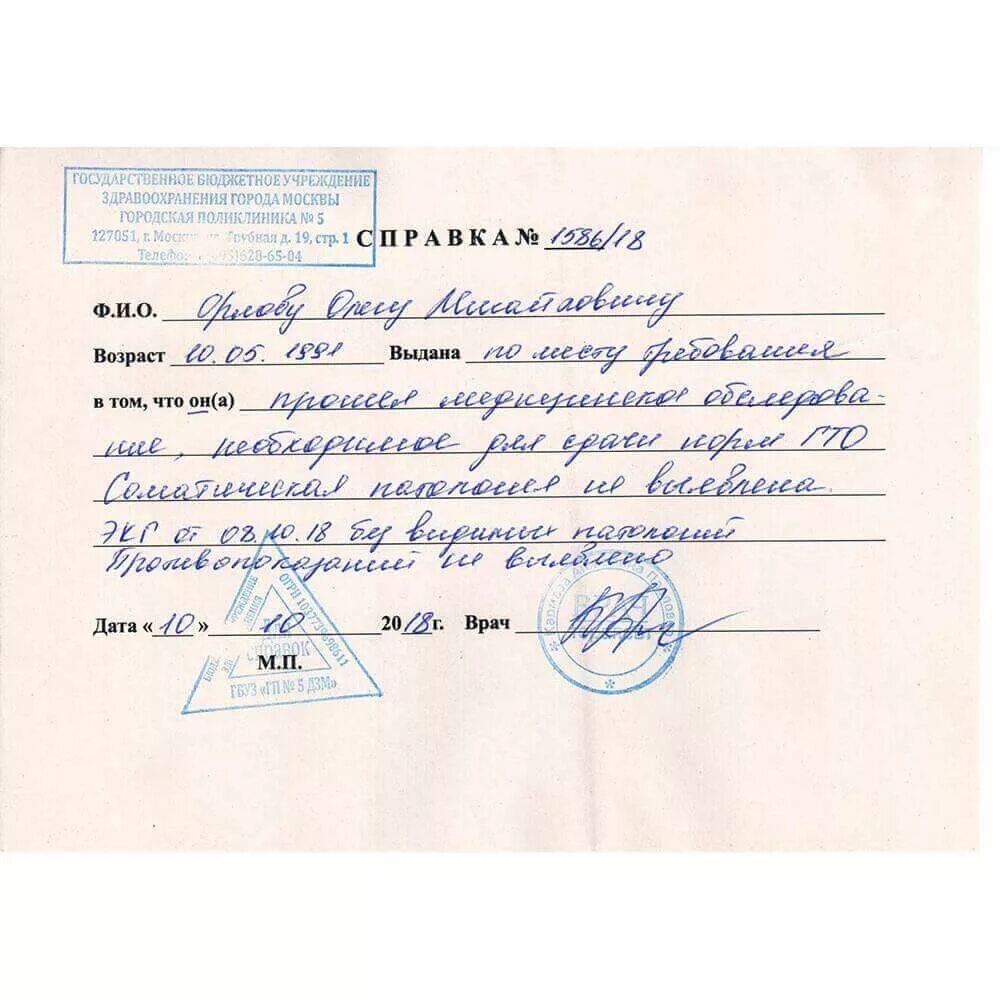 ГОСУДАРСТВЕННОЕ БЮДЖЕТНОЕ УЧРЕЖДЕНИЕ
ЗДРАВООХРАНЕНИЯ ГОРОДА МОСКВЫ
ГОРОДСКАЯ ПОЛИКЛИНИКА № 5
127051, г. Москва, Трубная д. 19, стр. 1
628-65-04
СПРАВКА № 1586/18
Ф.И.О. Орлову Олегу Михайловичу
Возраст 10.05.1991 Выдана по месту требования
в том, что он(а) прошел медицинское обследова-
ние, необходимое для сдачи норм ГТО
Соматическая патология не выявлена.
ЭКГ от 08.10.18 без видимых патологий
Противопоказаний не выявлено
Дата «10» 10 2018г. Врач
М.П.
справок
ГБУЗ «ГП № 5 ДЗМ»
ВРАЧ